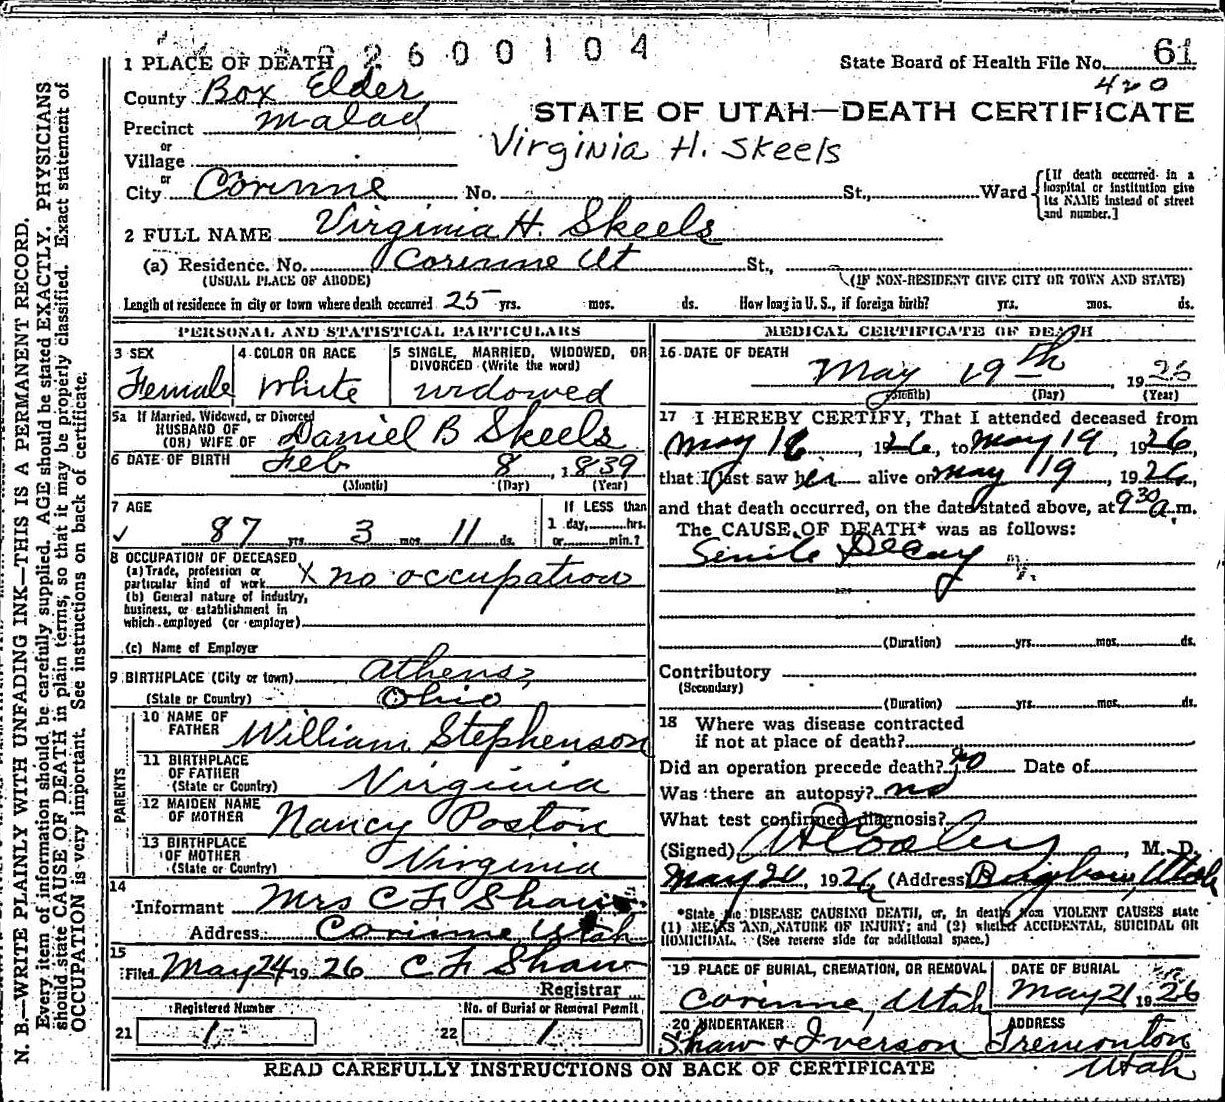 2600104
1 PLACE OF DEATH
State Board of Health File No. 61
420
County Box Elder
STATE OF UTAH—DEATH CERTIFICATE
Precinct Malad
Virginia H. Skeels
or
Village
or
City Corinne No. St., Ward
[If death occurred in a hospital or institution give its NAME instead of street and number.]
2 FULL NAME Virginia H. Skeels
(a) Residence. No. Corinne Ut St.,
(USUAL PLACE OF ABODE) (IF NON-RESIDENT GIVE CITY OR TOWN AND STATE)
Length of residence in city or town where death occurred 25 yrs. mos. ds. How long in U. S., if foreign birth? yrs. mos. ds.
PERSONAL AND STATISTICAL PARTICULARS
3 SEX
Female
4 COLOR OR RACE
White
5 SINGLE, MARRIED, WIDOWED, OR
DIVORCED (Write the word)
widowed
5a If Married, Widowed, or Divorced
HUSBAND OF
(OR) WIFE OF Daniel B Skeels
6 DATE OF BIRTH Feb 8 1839
(Month) (Day) (Year)
7 AGE
87 yrs. 3 mos. 11 ds.
If LESS than
1 day, hrs.
or min.?
8 OCCUPATION OF DECEASED
(a) Trade, profession or
particular kind of work X no occupation
(b) General nature of industry,
business, or establishment in
which employed (or employer)
(c) Name of Employer
9 BIRTHPLACE (City or town) Athens,
(State or Country) Ohio
PARENTS
10 NAME OF
FATHER William Stephenson
11 BIRTHPLACE
OF FATHER
(State or Country) Virginia
12 MAIDEN NAME
OF MOTHER Nancy Poston
13 BIRTHPLACE
OF MOTHER
(State or Country) Virginia
14
Informant Mrs C F Shaw
Address Corinne Utah
15
Filed May 24 1926 C F Shaw
Registrar
Registered Number
21 1
No. of Burial or Removal Permit
22 1
MEDICAL CERTIFICATE OF DEATH
16 DATE OF DEATH
May 19th, 1926
(Month) (Day) (Year)
17 I HEREBY CERTIFY, That I attended deceased from
May 16, 1926, to May 19, 1926,
that I last saw her alive on May 19, 1926,
and that death occurred, on the date stated above, at 930 a.m.
The CAUSE OF DEATH* was as follows:
Senile Decay
(Duration) yrs. mos. ds.
Contributory
(Secondary)
(Duration) yrs. mos. ds.
18 Where was disease contracted
if not at place of death?
Did an operation precede death? no Date of
Was there an autopsy? no
What test confirmed diagnosis?
(Signed) , M. D.
May 21, 1926 (Address) Brigham, Utah
*State the DISEASE CAUSING DEATH, or, in deaths from VIOLENT CAUSES state
(1) MEANS AND NATURE OF INJURY; and (2) whether ACCIDENTAL, SUICIDAL OR
HOMICIDAL. (See reverse side for additional space.)
19 PLACE OF BURIAL, CREMATION, OR REMOVAL
Corinne, Utah
DATE OF BURIAL
May 21 1926
20 UNDERTAKER
Shaw & Iverson
ADDRESS
Tremonton
Utah
READ CAREFULLY INSTRUCTIONS ON BACK OF CERTIFICATE
N. B.—WRITE PLAINLY WITH UNFADING INK—THIS IS A PERMANENT RECORD.
Every item of information should be carefully supplied. AGE should be stated EXACTLY. PHYSICIANS
should state CAUSE OF DEATH in plain terms, so that it may be properly classified. Exact statement of
OCCUPATION is very important. See instructions on back of certificate.